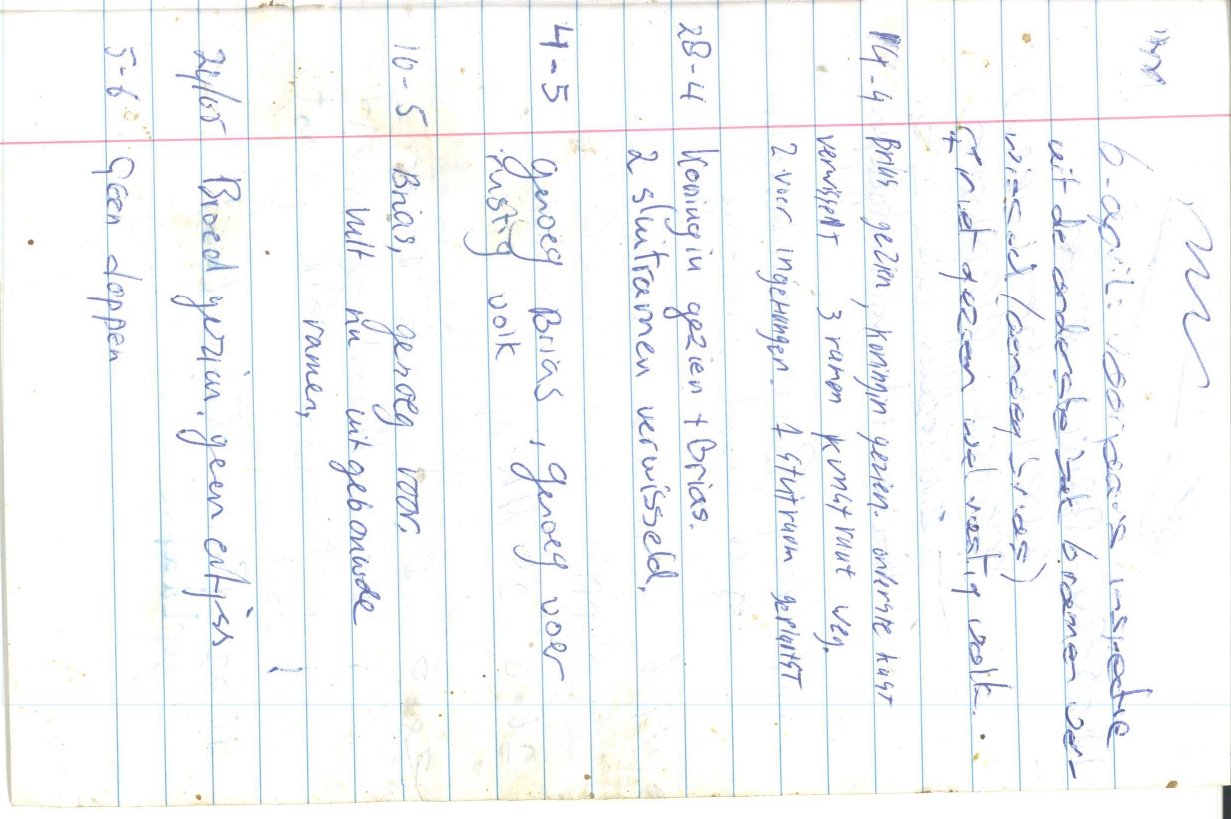 6-april: voorjaars inspectie
uit de onderste bak 6 ramen ver-
wisseld (genoeg brias)
niet gezien wel rustig volk.
14-4 Brias gezien, koningin gezien. onderste kast
verwisselt 3 ramen kunstraat weg.
2 voer ingehangen. 1 sluitraam geplaatst
28-4 Koningin gezien + Brias.
2 sluitramen verwisseld,
4-5 genoeg Brias, genoeg voer
rustig volk
10-5 Brias, genoeg voer,
vult nu uitgebouwde
ramen,
24/05 Broed gezien. geen eitjes
5-6 Geen doppen